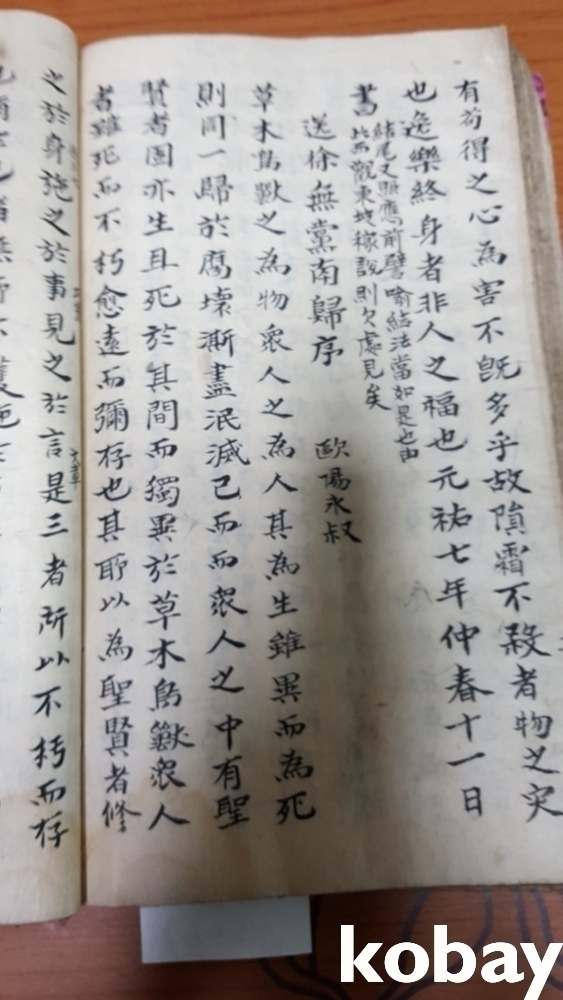 有苟得之心為害不旣多乎故隕霜不殺者物之灾
也逸樂終身者非人之福也元祐七年仲春十一日
書 結尾又照應前譬喻結法當如是也由
此而觀東坡稼說則欠處見矣
送徐無黨南歸序 歐陽永叔
草木鳥獸之為物衆人之為人其為生雖異而為死
則同一歸於腐壞澌盡泯滅已而而衆人之中有聖
賢者固亦生且死於其間而獨異於草木鳥獸衆人
者雖死而不朽愈遠而彌存也其所以為聖賢者修
之於身施之於事見之於言是三者所以不朽而存
kobay